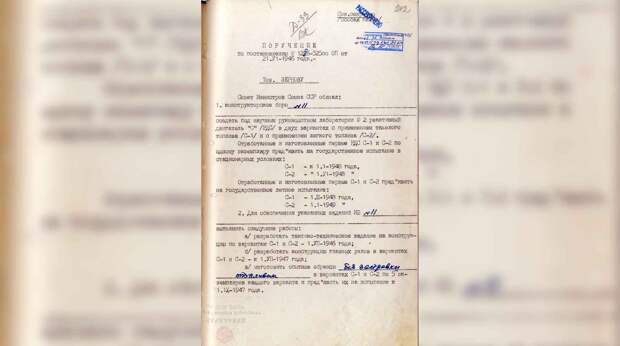 202
ПОРУЧЕНИЕ
по постановлению
от
21.VI-1946 года.-
Тов. ЗЕРНОВУ
Совет Министров Союза ССР обязал:
1. конструкторское бюро №11
создать под научным руководством лаборатории № 2 реактивный
двигатель "С" /РДС/ в двух вариантах с применением тяжелого
топлива /С-1/ и с применением легкого топлива /С-2/.
Отработанные и изготовленные первые РДС С-1 и С-2 по
одному экземпляру пред"явить на государственное испытание в
стационарных условиях:
С-1 - к 1.I-1948 года,
С-2 - " 1.VI-1948 "
Отработанные и изготовленные первые С-1 и С-2 пред"явить
на государственное летное испытание:
С-1 - 1.III-1948 года,
С-2 - 1.I-1949 "
2. Для обеспечения указанных заданий КБ №11
выполнить следующие работы:
а/ разработать тактико-техническое задание на конструк-
цию по вариантам С-1 и С-2 - 1.VII-1946 года;
б/ разработать конструкции главных узлов в вариантах
С-1 и С-2 - к 1.VII-1947 года;
в/ изготовить опытные образцы без заправки
топливом в вариантах С-1 и С-2 по 5 эк-
земпляров каждого варианта и пред"явить их на испытание к
1.IX-1947 года.